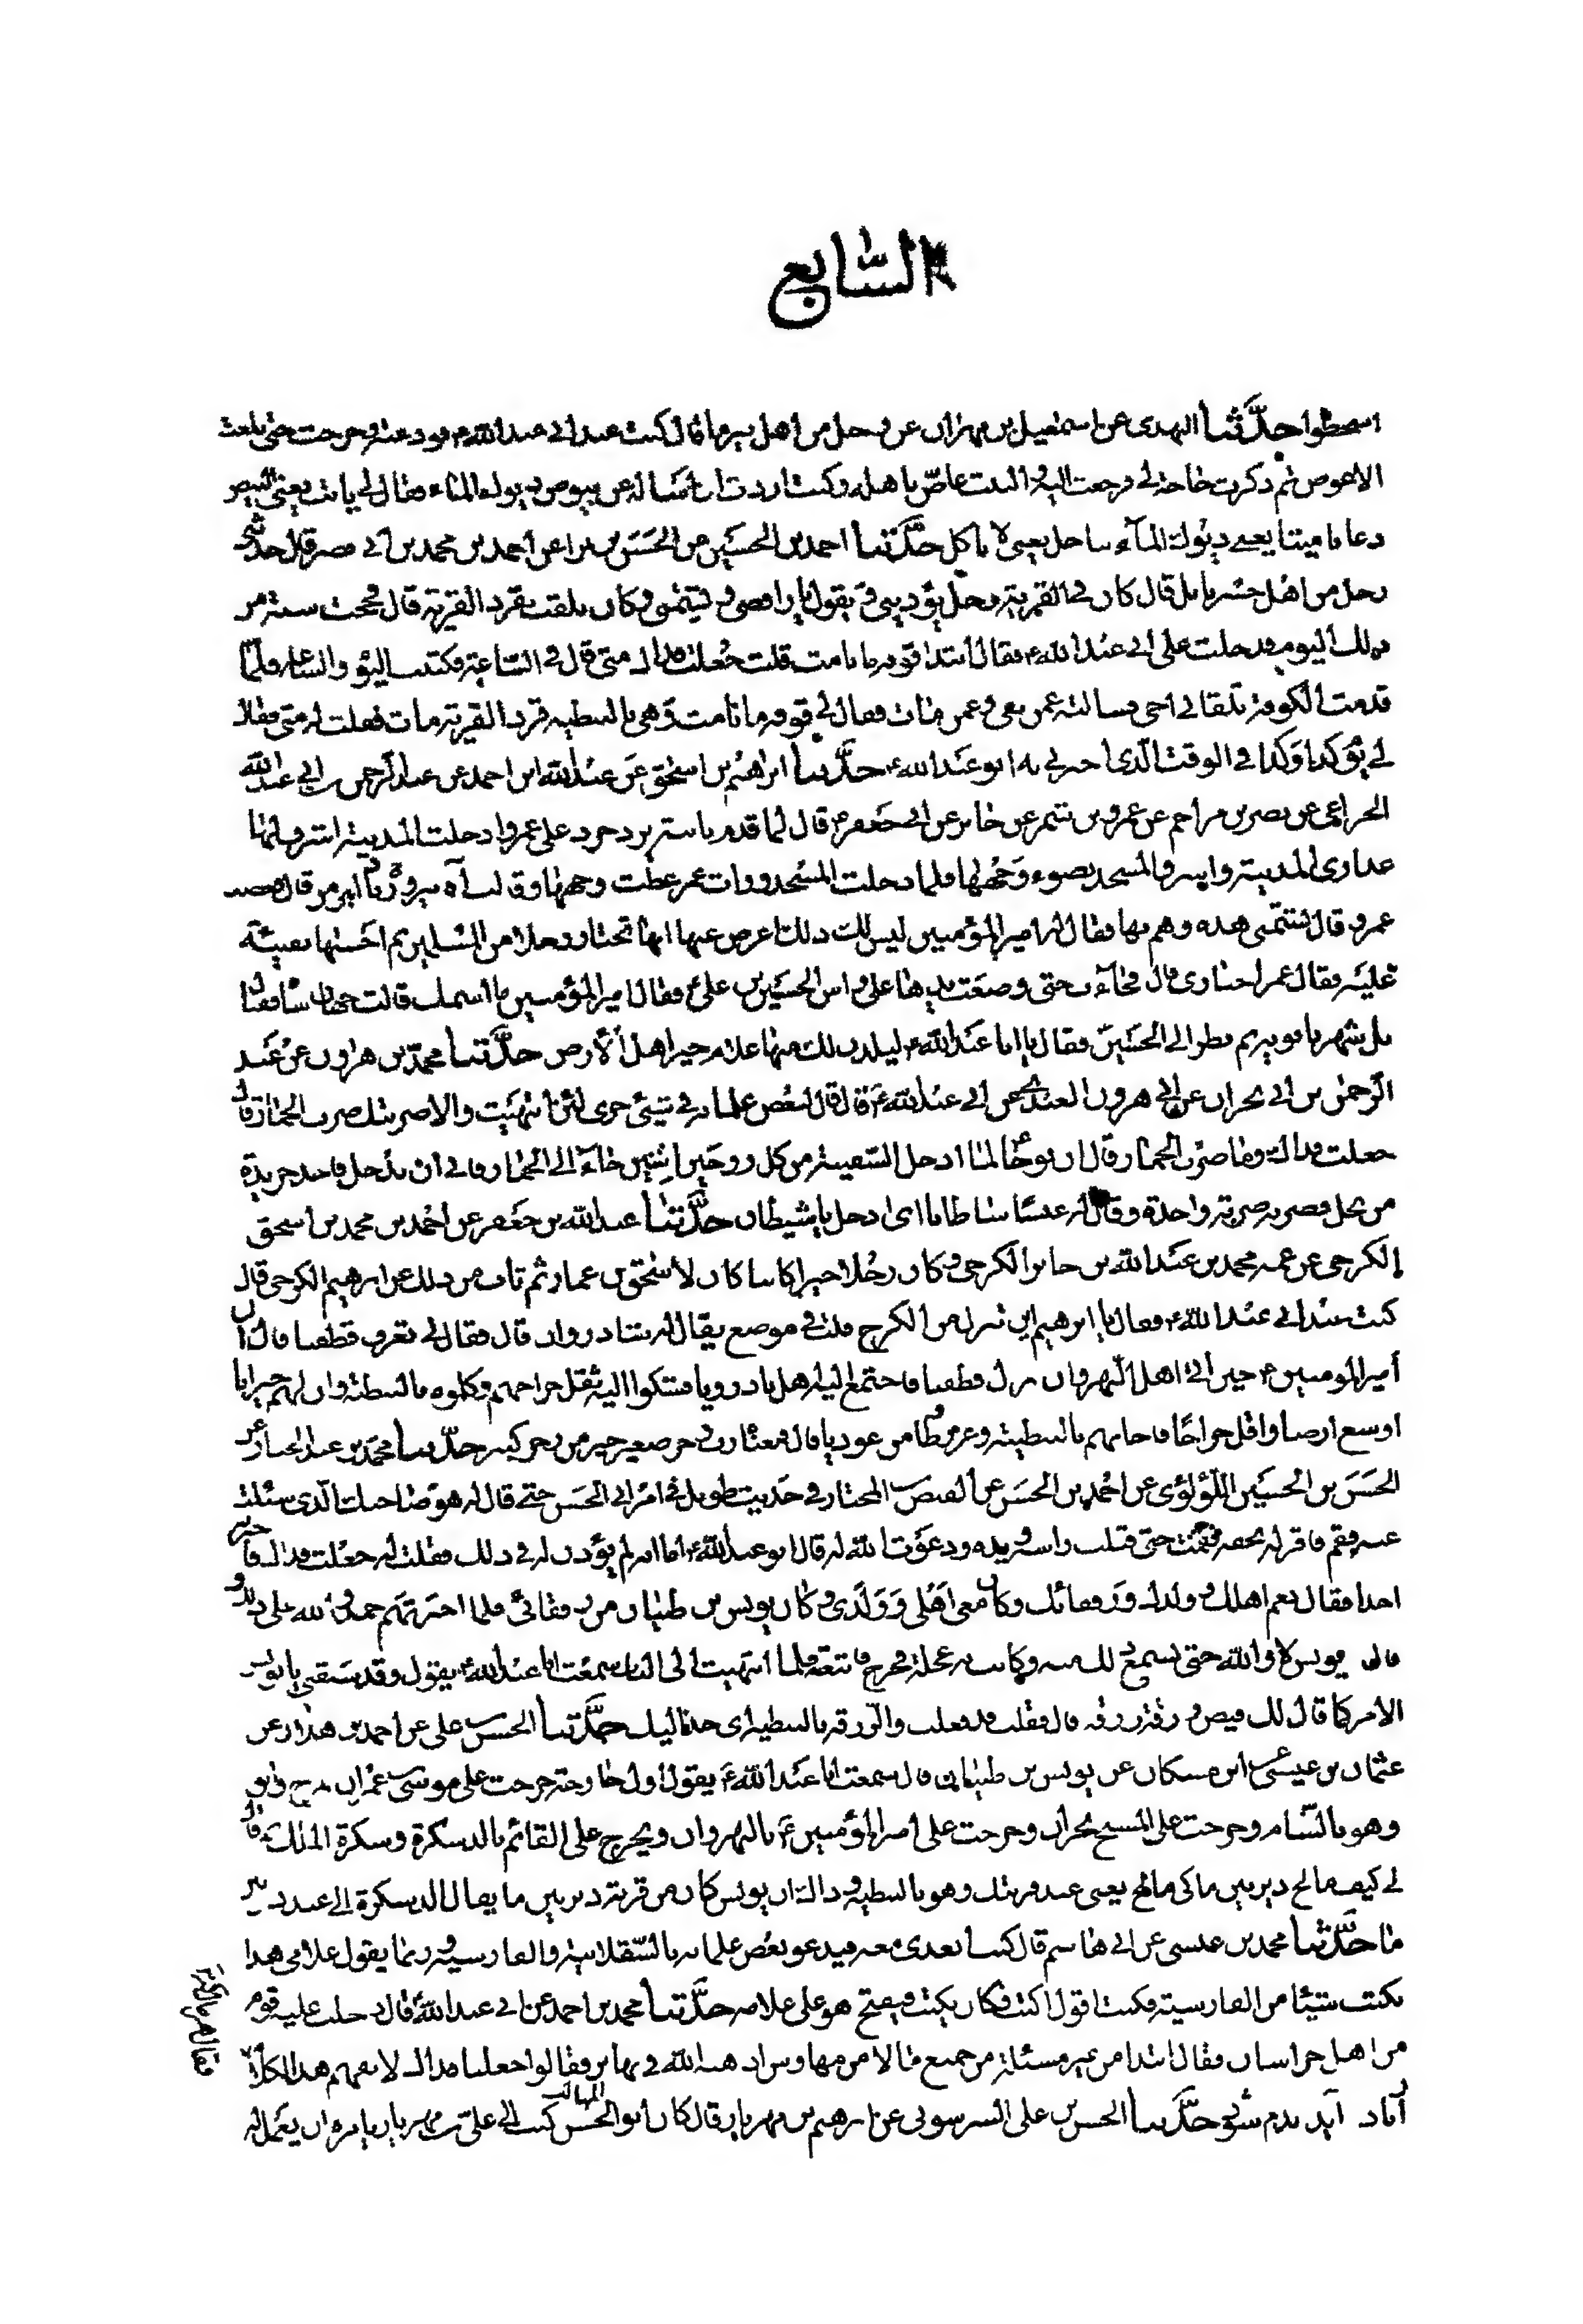 السّابع
حدّثنا النهدى عن اسمعيل بن مهران عن رجل من اهل بيرما قال كنت عند ابى عبد الله ع فودعته وخرجت حتى بلغت
الاعوص ثم ذكرت حاجة لى فرجعت اليه والبيت غاصّ باهله وكنت اردت ان اسأله عن بيوض ديوك الماء فقال لى يابت يعنى البيض
دعانا ميتا يعنى ديوك المآء بناحل يعنى لا تاكل حدّثنا احمد بن الحسين عن الحسن بن برا عن احمد بن محمد بن ابى نصر قال حدثنى
رجل من اهل جسر بابل قال كان فى القرية رجل يؤذينى ويقول يا رافضى ويشتمنى وكان يلقب بقرد القرية قال فحججت سنة من
ذلك اليوم فدخلت على ابى عبد الله ع فقال ابتداء قوفه ما نامت قلت جعلت فداك متى قال فى السّاعة فكتبت اليوم والساعة فلمّا
قدمت الكوفة تلقانى اخى فسالته عمن بقى وعمن مات فقال لى قوفه ما نامت وهى بالنبطية قرد القرية مات فقلت له متى فقال
لى يوم كذا وكذا فى الوقت الّذى اخبرنى به ابو عبد الله ع حدّثنا ابراهيم بن اسحق عن عبد الله ابن احمد عن عبد الرحمن بن ابى عبد الله
الخزاعى عن نصر بن مزاحم عن عمرو بن شمر عن جابر عن ابى جعفر ع قال لما قدم بابنة يزدجرد على عمر وادخلت المدينة اشرف لها
عذارى المدينة واشرق المسجد بضوء وجهها فلما دخلت المسجد ورات عمر غطت وجهها وقالت آه بيروز باد اهرمز قال فغضب
عمر وقال تشتمنى هذه وهم بها فقال له امير المؤمنين ليس لك ذلك اعرض عنها انها تختار رجلا من المسلمين ثم احسبها بفيئه
عليه فقال عمر اختارى قال فجاءت حتى وضعت يدها على راس الحسين بن على ع فقال امير المؤمنين ما اسمك قالت جهان شاه فقال
بل شهربانويه ثم نظر الى الحسين فقال يا ابا عبد الله ع ليلدن لك منها غلام خير اهل الأرض حدّثنا محمد بن هارون عن عبد
الرّحمن بن ابى نجران عن ابى هرون العبدى عن ابى عبد الله ع قال قال لبعض غلمانه فى شيئ جرى لئن انتهيت والا ضربتك ضرب الحمار قال
جعلت فداك وما ضرب الحمار قال ان نوحا لما ادخل السّفينة من كل زوجين اثنين جاء الى الحمار فابى ان يدخل فاخذ جريدة
من نخل فضربه ضربة واحدة وقال له عبسا شاطانا اى ادخل يا شيطان حدّثنا عبد الله بن جعفر عن احمد بن محمد بن اسحق
الكرخى عن عمه محمد بن عبد الله بن جابر الكرخى وكان رجلا خيرا كاتبا كان لاسحق بن عمار ثم تاب من ذلك عن ابرهيم الكرخى قال
كنت عند ابى عبد الله ع فقال يا ابرهيم اين تنزل من الكرخ قلت فى موضع يقال له شادروان قال فقال لى تعرف قطفتا قال ان
أمير المومنين ع حين اتى اهل النهروان نزل قطفتا فاجتمع اليه اهل بادوريا فشكوا اليه ثقل خراجهم وكلموه بالنبطية وان لهم جيرانا
اوسع ارضا واقل خراجًا فاجابهم بالنبطية وعرو ظا من عوديا قال فمعناه رب رجز صغير خير من رجز كبير حدّثنا محمد بن عبد الجبار عن
الحسن بن الحسين اللؤلؤى عن احمد بن الحسن عن الفيض بن المختار فى حديث طويل فى امر ابى الحسن حتى قال له هو صاحبك الّذى سئلت
عنه فقم فاقر له بحقه فقمت حتى قبلت راسه ويده ودعوت الله له قال ابو عبد الله ع اما انه لم يؤذن له فى ذلك فقلت له جعلت فداك فاخبر به
احدا فقال نعم اهلك وولدك ورفقائك وكان معى اهلى وولدى وكان يونس بن ظبيان من رفقائى فلما اخبرتهم حمدوا الله على ذلك و
قال يونس لا والله حتى نسمع ذلك منه وكانت به عجلة فخرج فاتبعته فلما انتهيت الى الباب سمعت ابا عبد الله ع يقول وقد سبقنى يا يونس
الامر كما قال لك فيض زرقه زرقه قال فقلت قد فعلت والزرقه بالنبطية اى خذه اليك حدّثنا الحسن بن على عن احمد بن هلال عن
عثمان بن عيسى عن ابن مسكان عن يونس بن ظبيان قال سمعت ابا عبد الله ع يقول اول خارجة خرجت على موسى بن عمران بمرج دابق
وهو بالشّام وخرجت على المسيح بحران وخرجت على امير المؤمنين ع بالنهروان ويخرج على القائم بالدسكرة دسكرة الملك ثم قال
لى كيف مالح ديربين ماكى مالح يعنى عند قريتك وهو بالنبطية وذاك ان يونس كان من قرية ديربين ما يقال الدسكرة الى عند ديربين
ما حدّثنا محمد بن عيسى عن ابى هاشم قال كنت اتغدى معه فيدعو بعض غلمانه بالسّقلابية والفارسية وربما يقول غلامى هذا
يكتب شيئا من الفارسية فكنت اقول اكتب فكان يكتب فيفتح هو على غلامه حدّثنا محمد بن احمد عن ابى عبد الله ع قال دخل عليه قوم
من اهل خراسان فقال ابتداء من غير مسئلة من جمع مالا من مهاوش اذهبه الله فى نهابر فقالوا جعلنا فداك لا نفهم هذا الكلام
فقال هر مال كه از
باد آيد بدم شود حدّثنا الحسن بن على السرسونى عن ابرهيم بن مهزيار قال كان ابو الحسن كتب الى على بن مهزيار يامره ان يعمل له